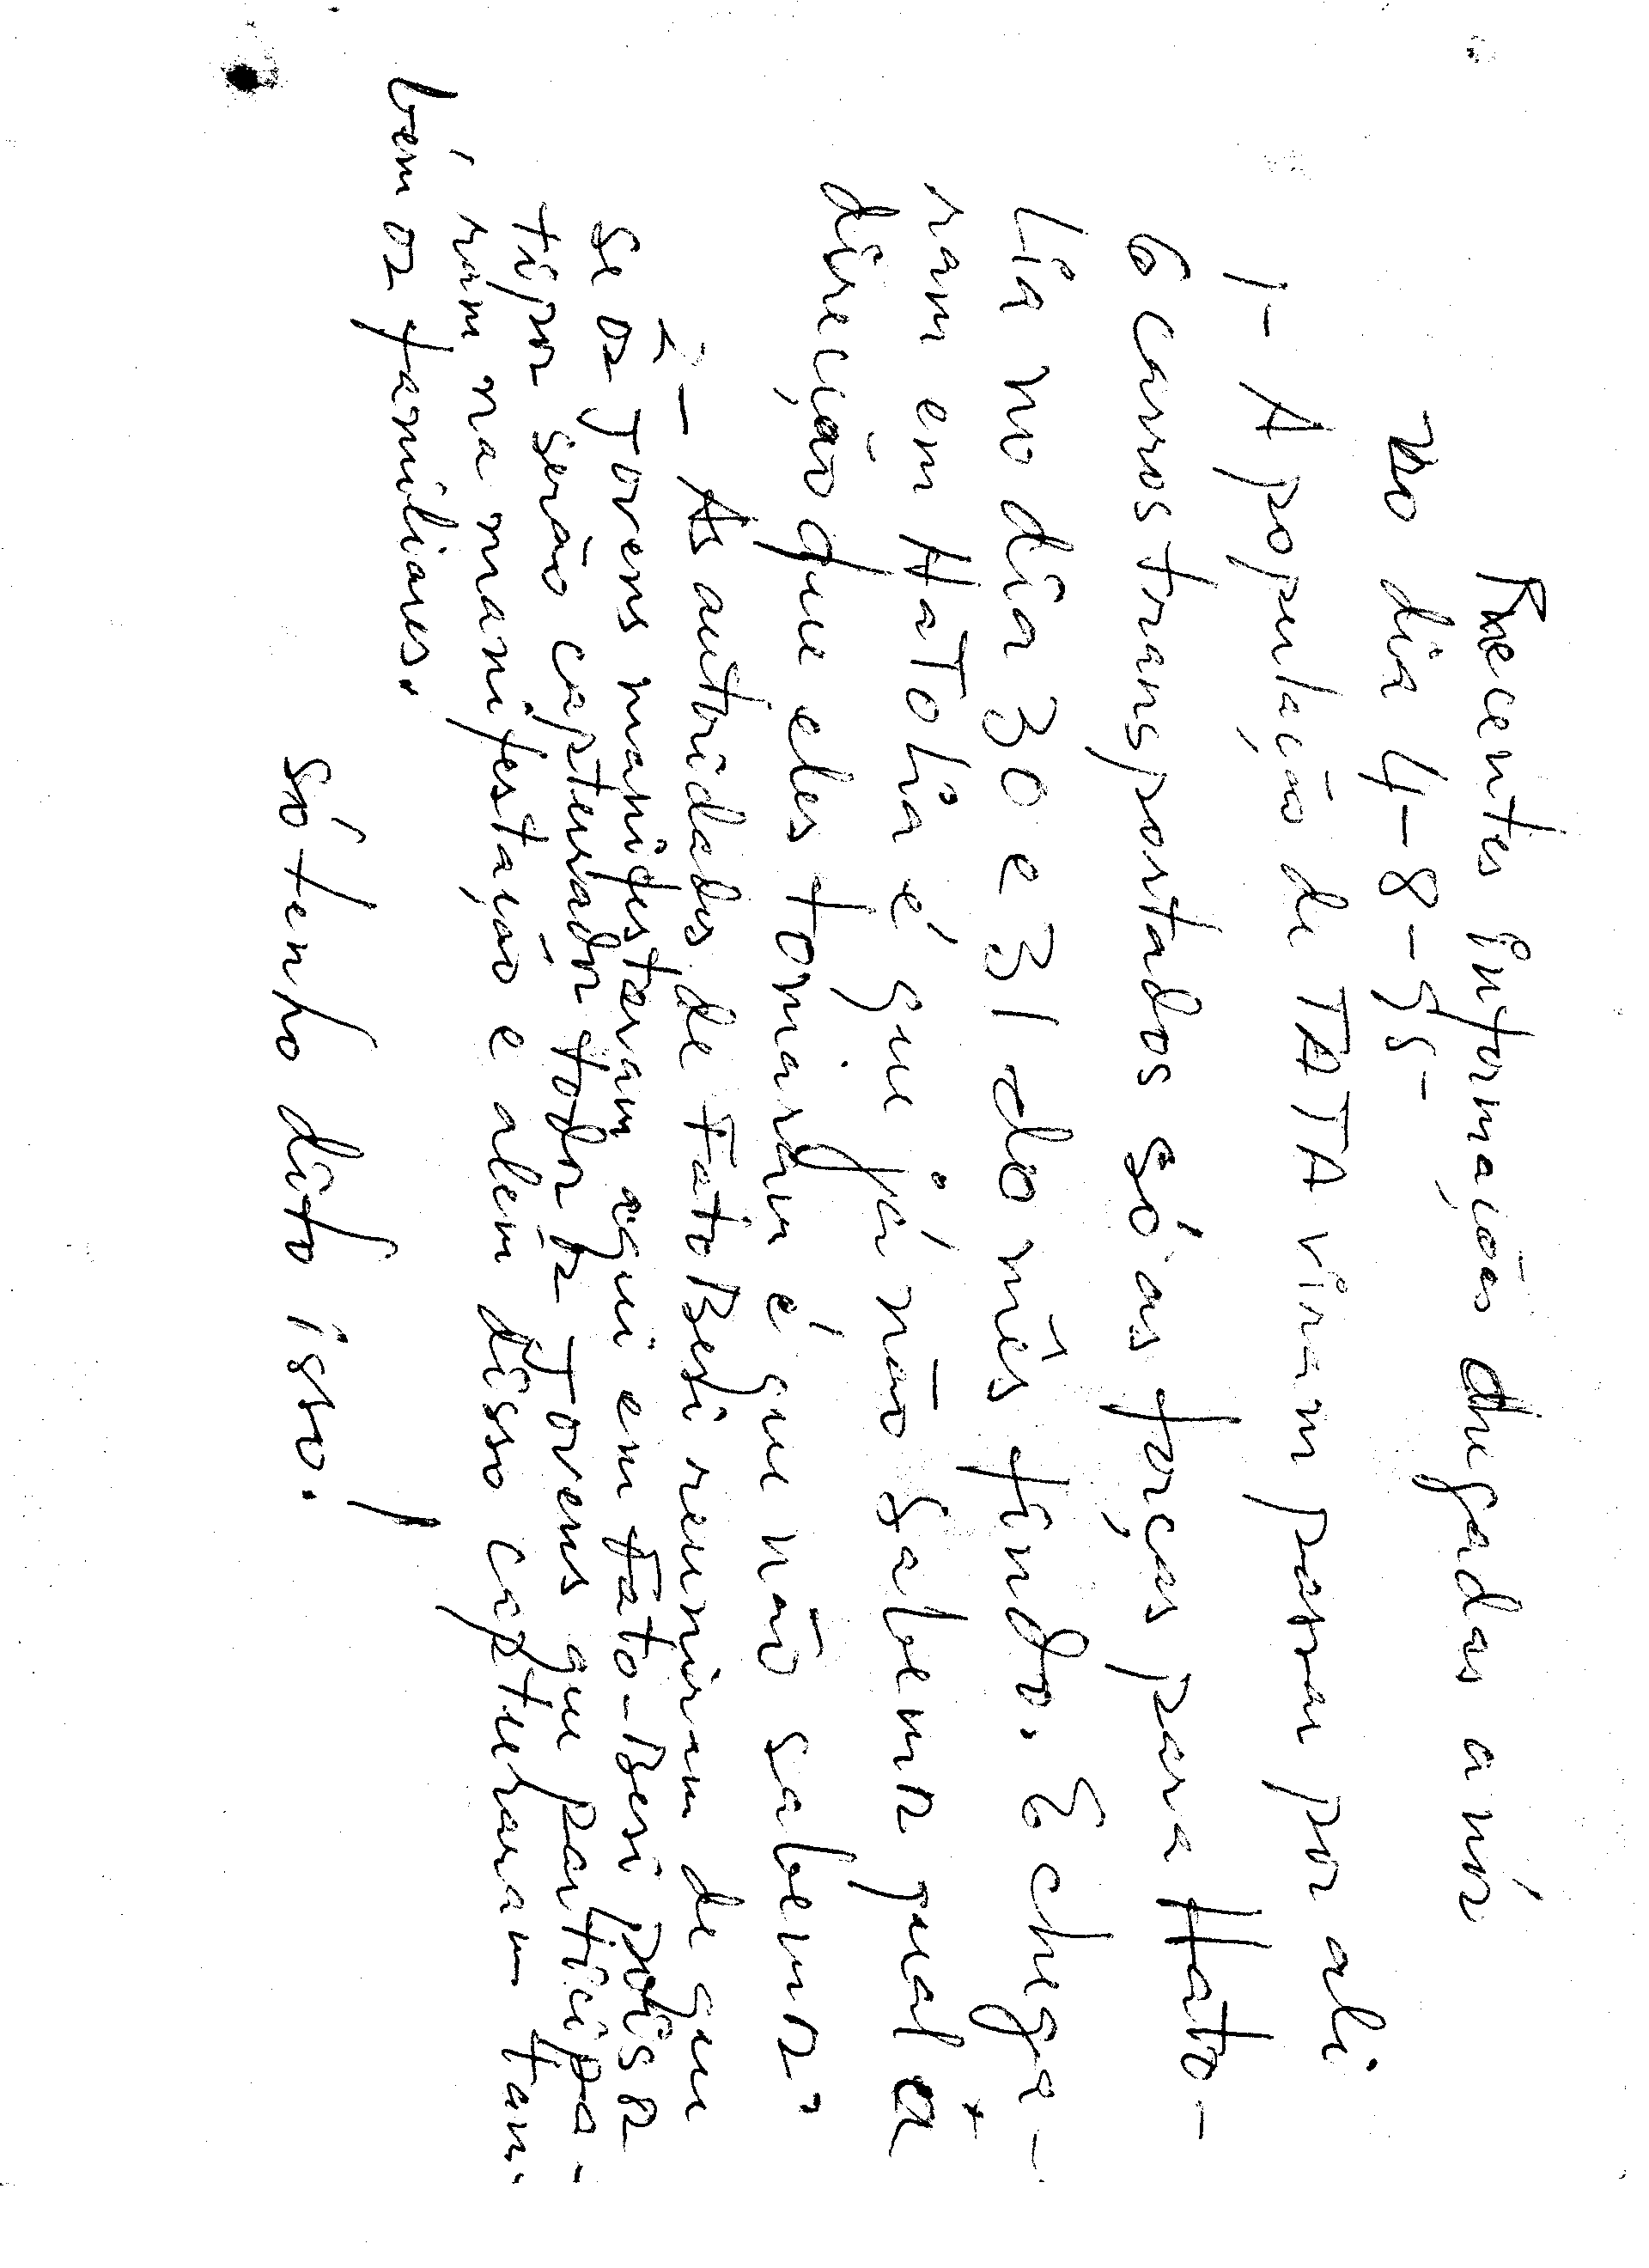 Recentes informações chegadas a nós
no dia 4-8-95-
1- A população de TATA viram passar por ali
6 carros transportados só as forças para Hato-
Lia no dia 30 e 31 do mês findo. E chega-
ram em HaToLia é que já não sabemos qual a
direcção que eles tomaram é que não sabemos.
2- As autoridades de FatoBesi reuniram de que
se os Jovens manifestaram aqui em Fato-Besi
tipos serão capturados todos os Jovens que participa-
ram na manifestação e alem disso capturaram tam-
bém os familiares.
só tenho dito isso.